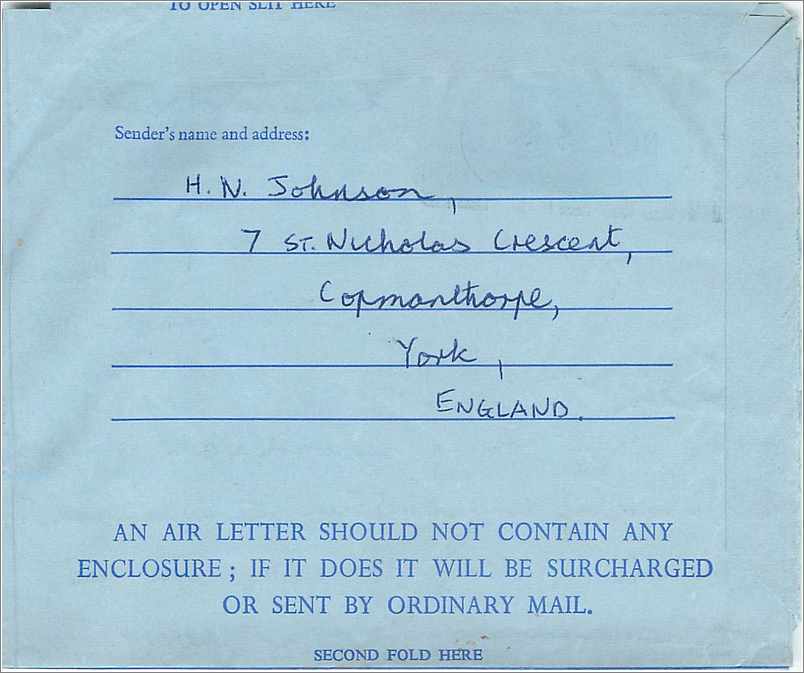 TO OPEN SLIT HERE
Sender's name and address:
H. N. Johnson,
7 ST. Nicholas Crescent,
Copmanthorpe,
York,
ENGLAND.
AN AIR LETTER SHOULD NOT CONTAIN ANY
ENCLOSURE; IF IT DOES IT WILL BE SURCHARGED
OR SENT BY ORDINARY MAIL.
SECOND FOLD HERE